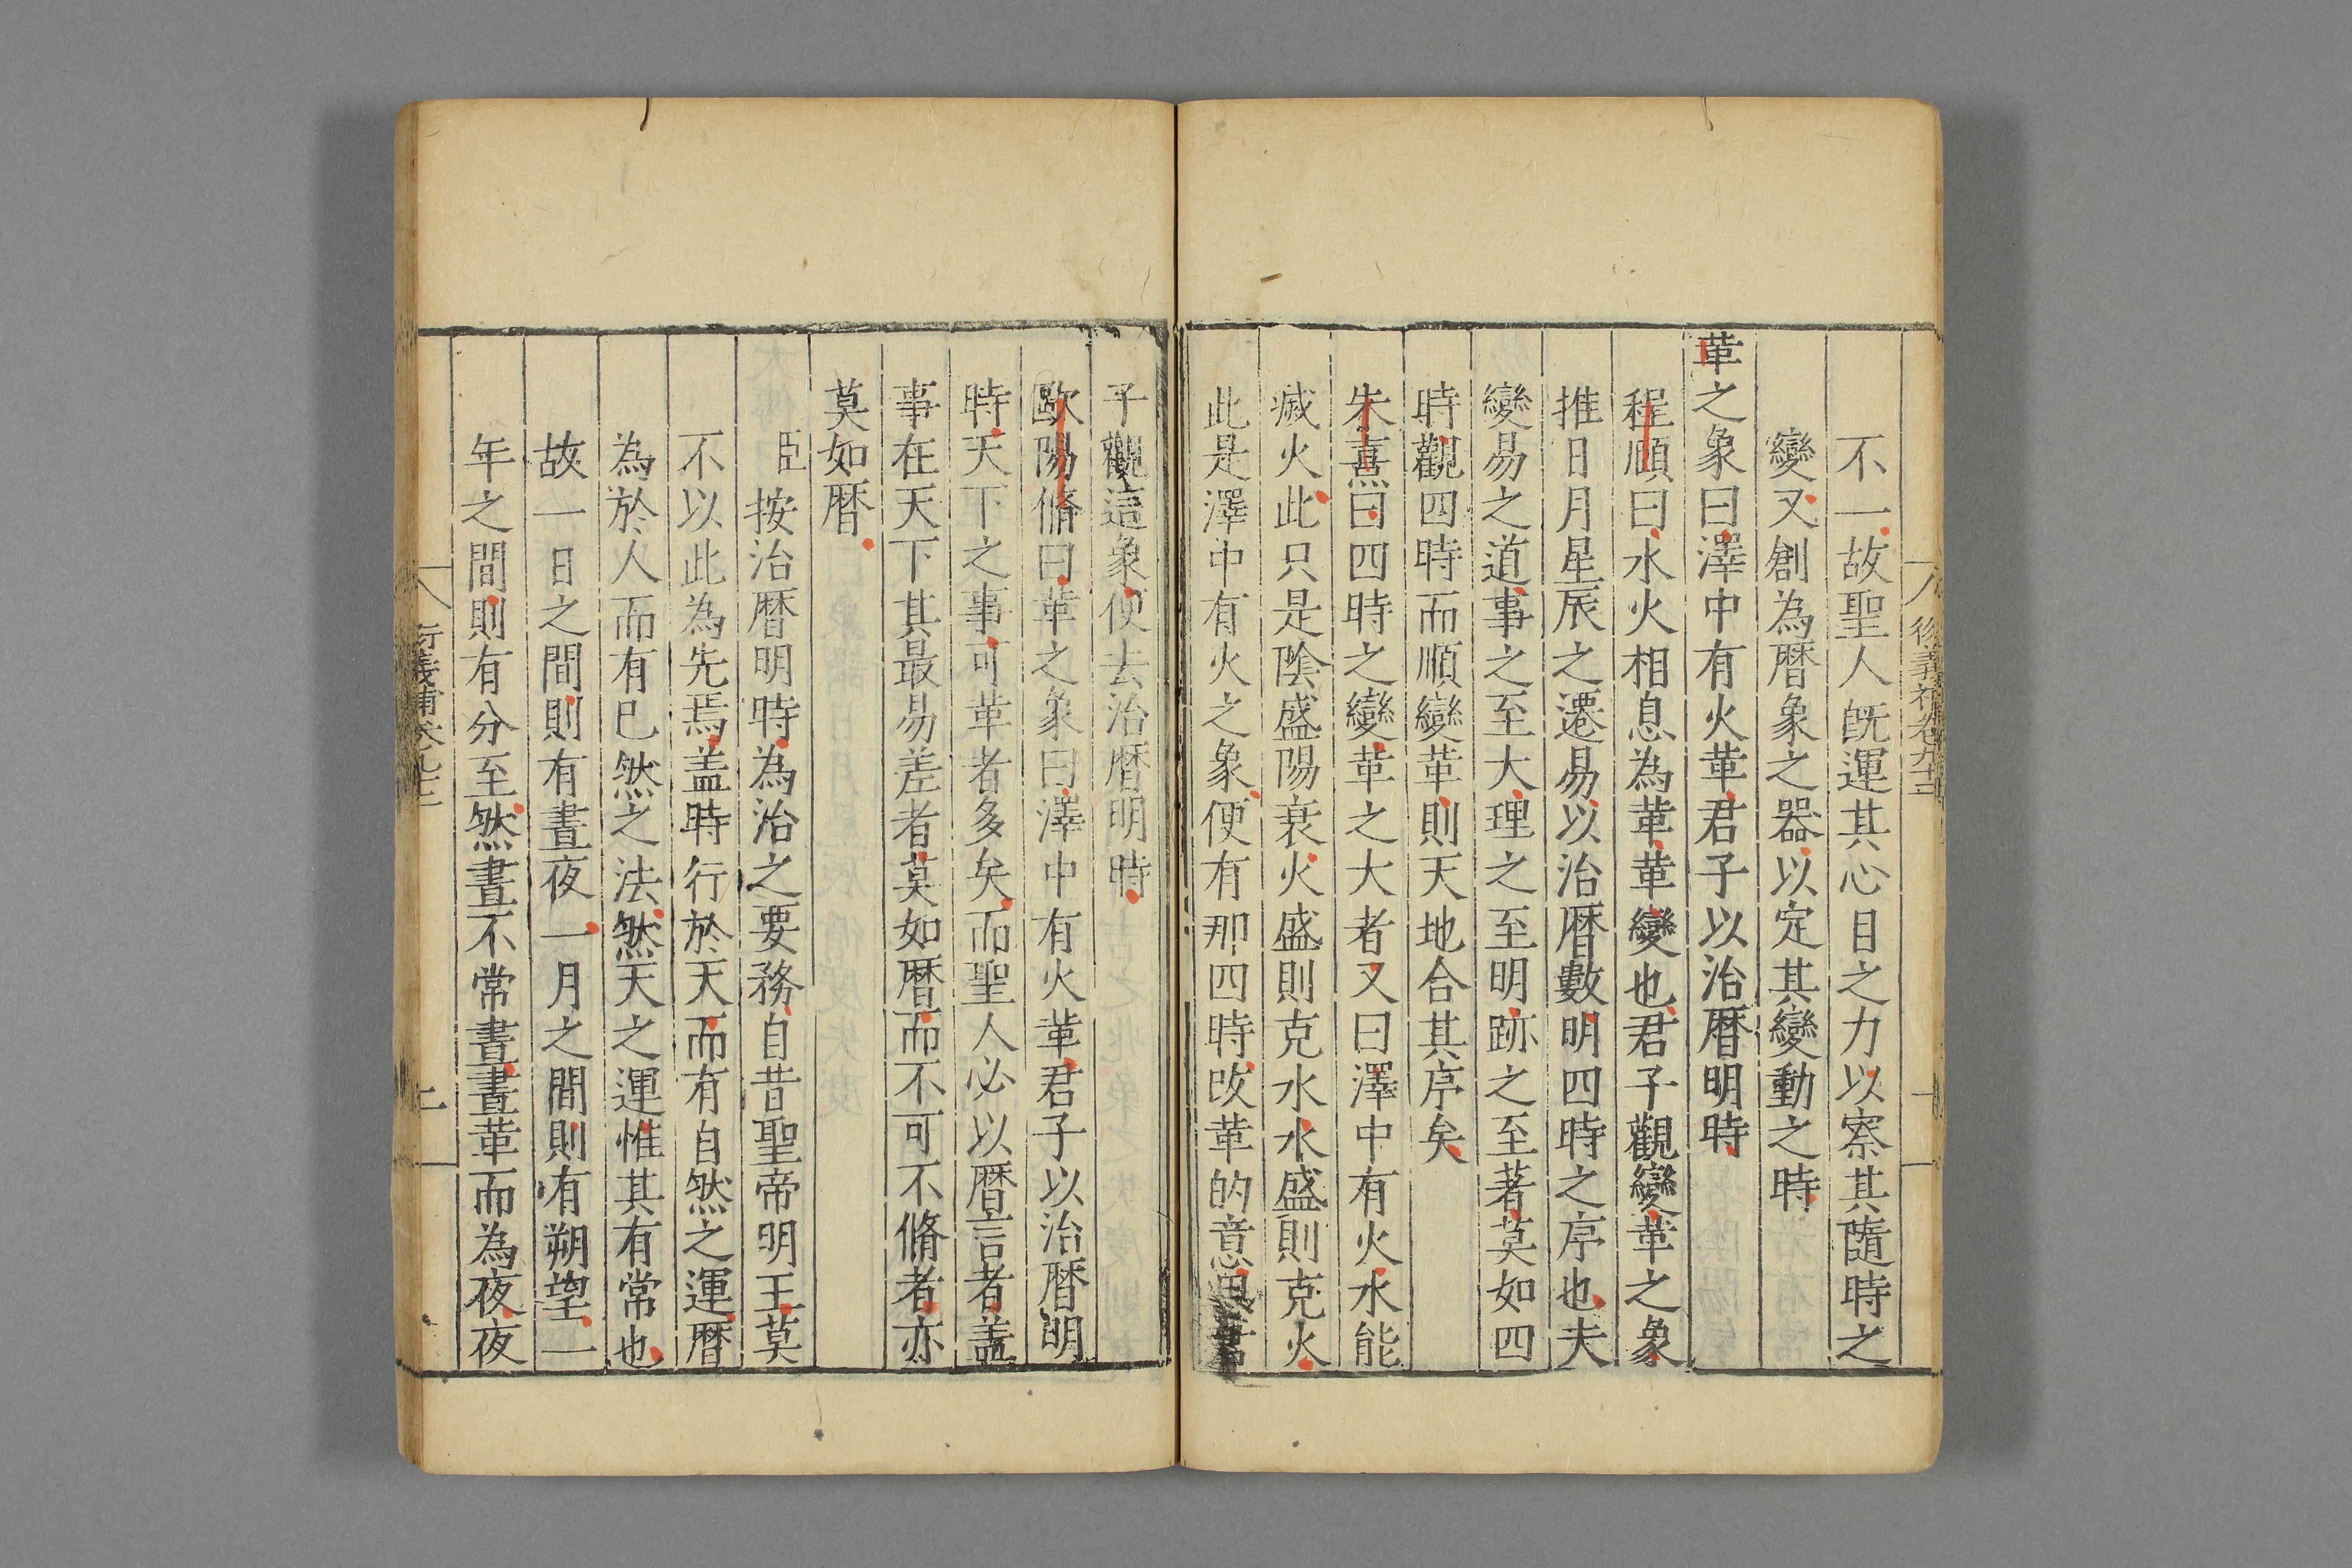 不一故聖人既運其心目之力以察其隨時之
變又創為暦象之器以定其變動之時
革之象曰澤中有火革君子以治暦明時
程頤曰水火相息為革革變也君子觀變革之象
推日月星辰之遷易以治暦數明四時之序也夫
變易之道事之至大理之至明跡之至著莫如四
時觀四時而順變革則天地合其序矣
朱熹曰四時之變革之大者又曰澤中有火水能
滅火此只是陰盛陽衰火盛則克水水盛則克火
此是澤中有火之象便有那四時改革的意思君
子觀這象便去治暦明時
歐陽脩曰革之象曰澤中有火革君子以治暦明
時天下之事可革者多矣而聖人必以暦言者蓋
事在天下其最易差者莫如暦而不可不脩者亦
莫如暦
臣按治暦明時為治之要務自昔聖帝明王莫
不以此為先焉盖時行於天而有自然之運暦
為於人而有已然之法然天之運惟其有常也
故一日之間則有晝夜一月之間則有朔望一
年之間則有分至然晝不常晝晝革而為夜夜